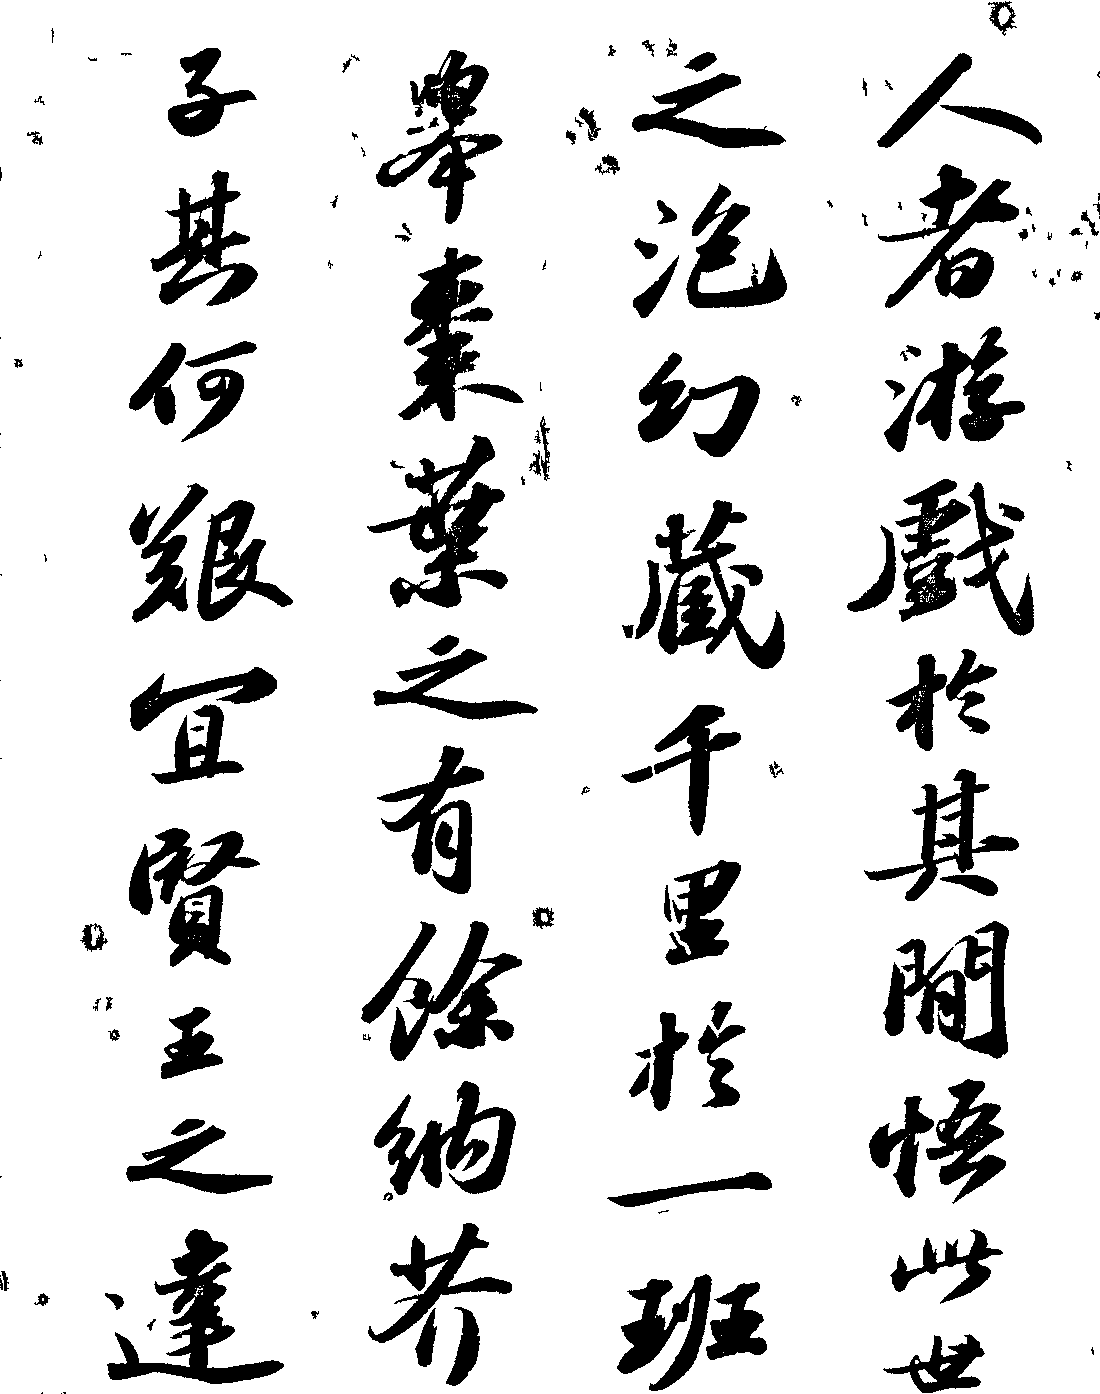 人者游戲於其閒悟此世
之泡幻藏千里於一班
舉棗葉之有餘納芥
子其何艱宜賢王之達